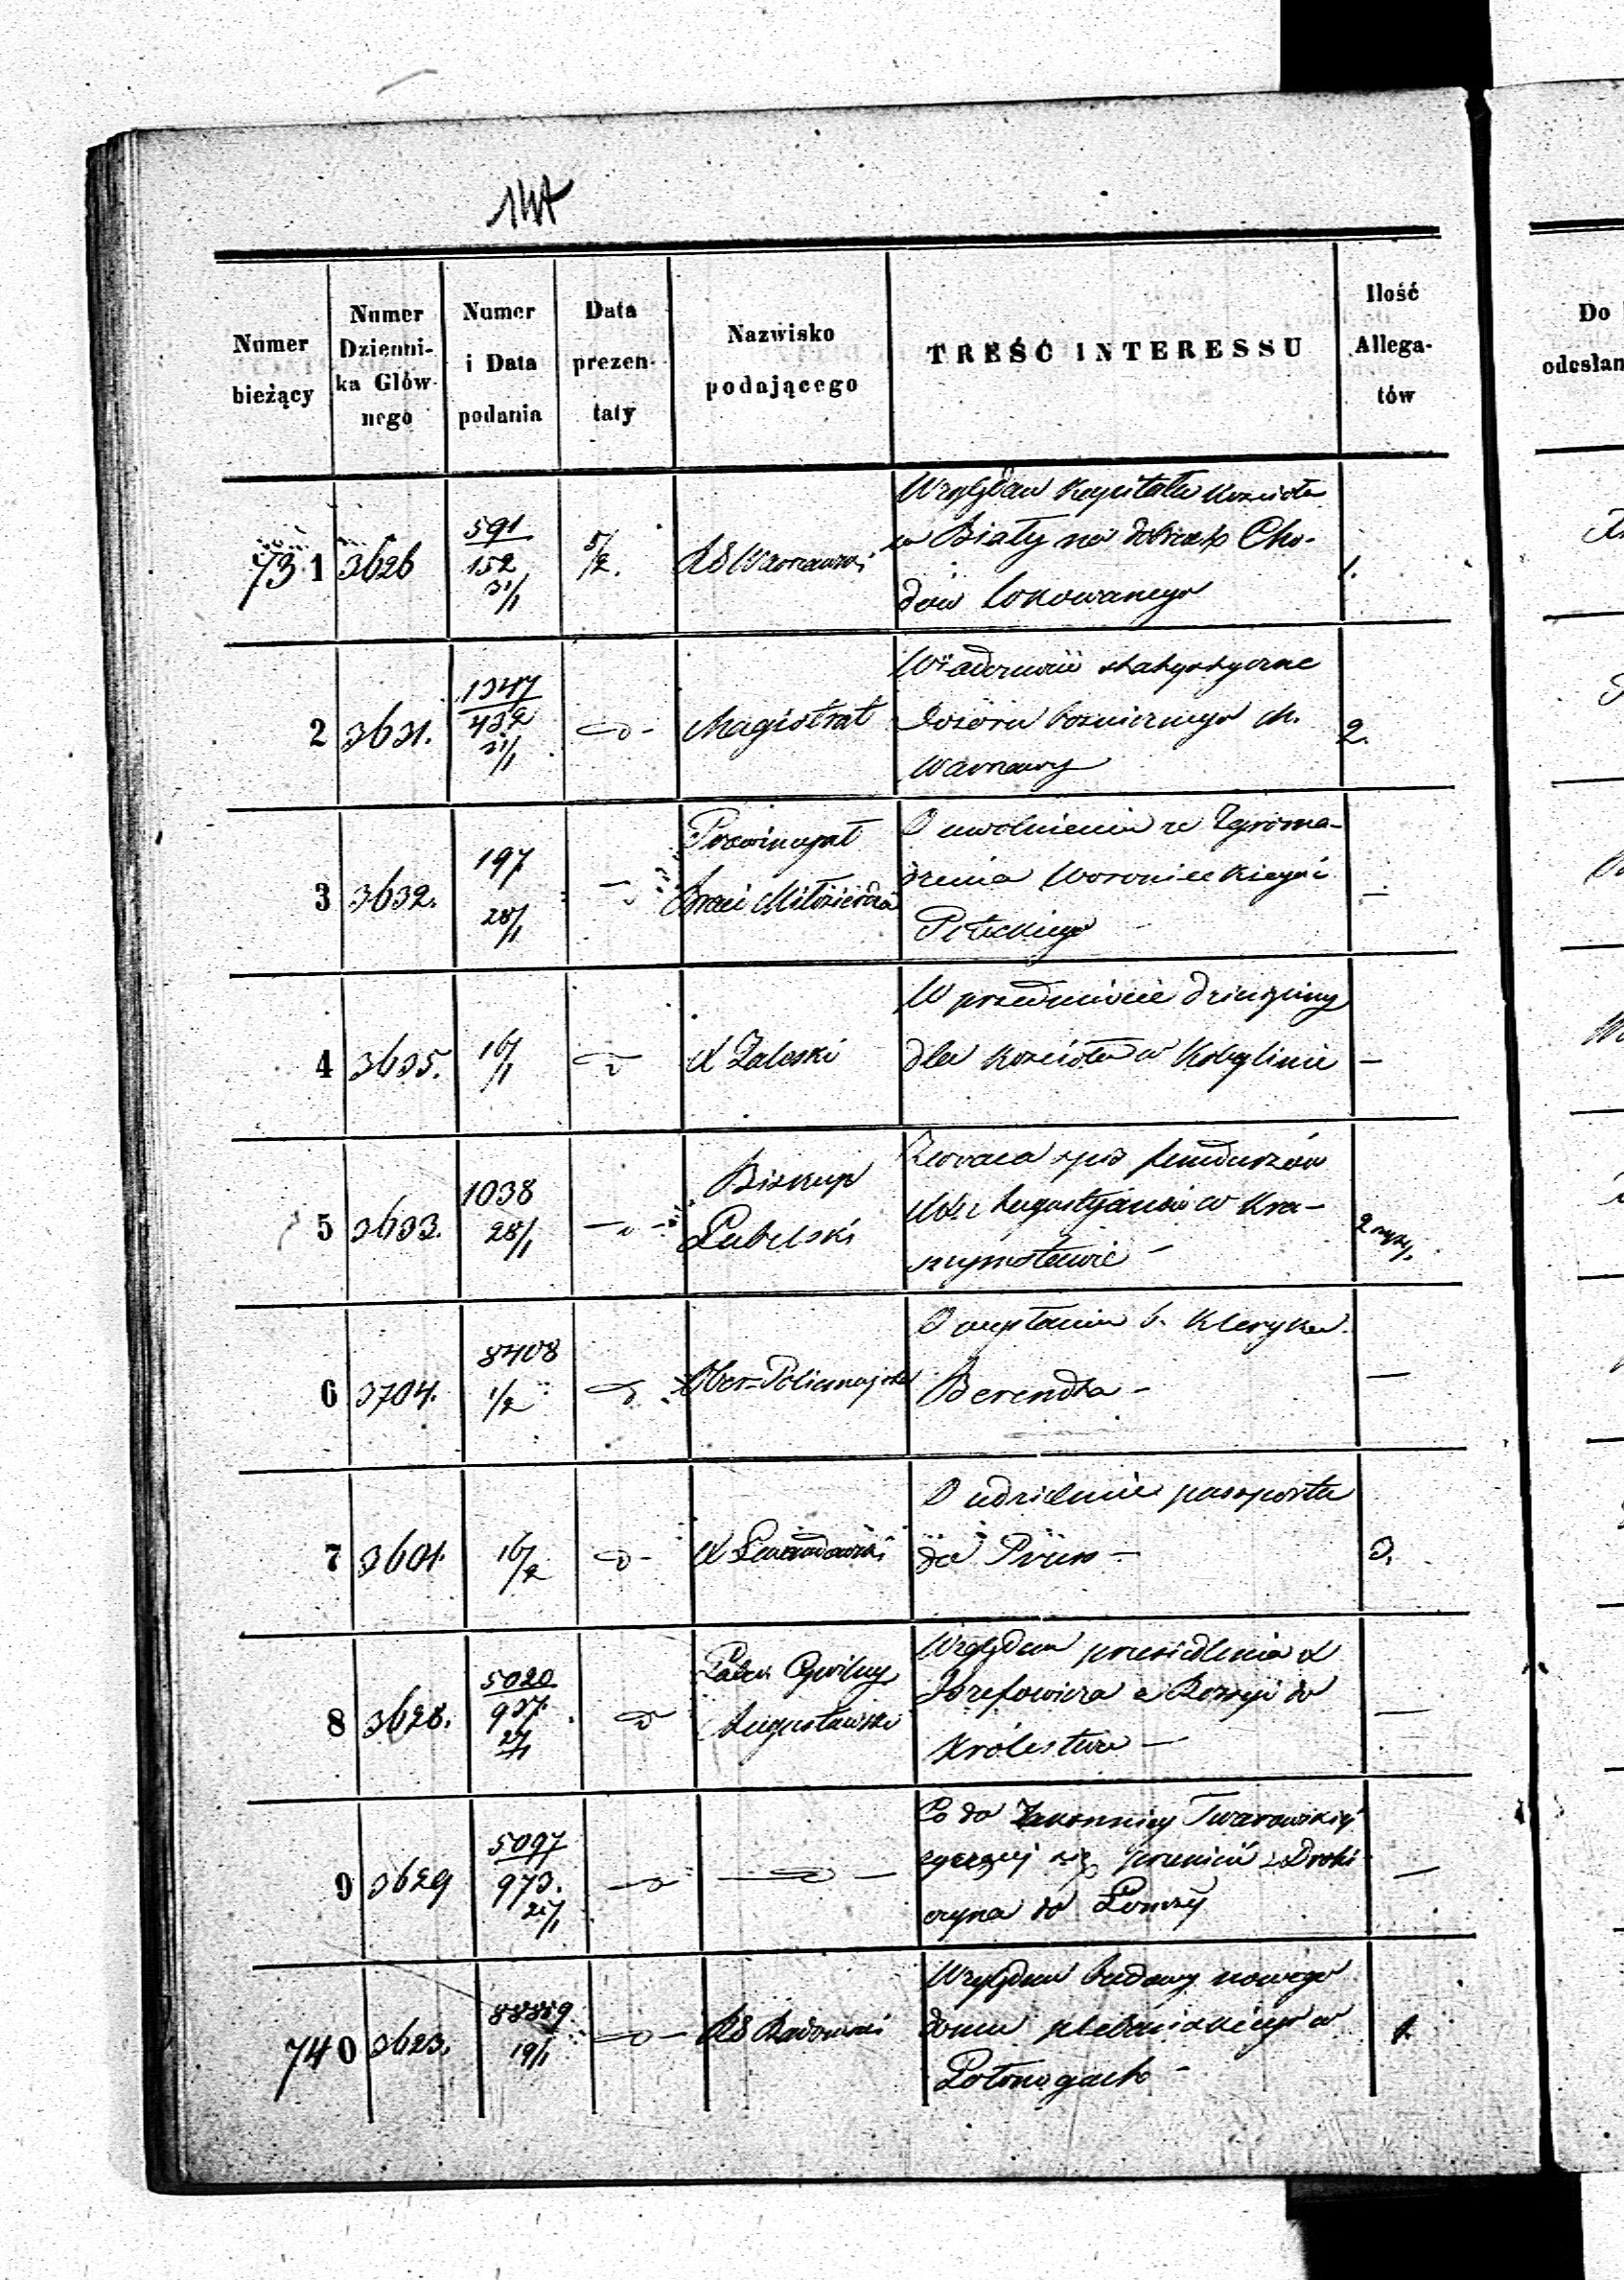 147
Numer
bieżący
Numer
Dzienni-
ka Głów-
nego
Numer
i Data
podania
Data
prezen-
taty
Nazwisko
podającego
TREŚĆ INTERESSU
Ilość
Allega-
tów
Do
odesłan
731 3626 591 152 31/1 5/2. RG Warszawski
Względem Kapitału Kościoła
w Biały na dobrach Cho-
dów lokowanego
1.
2 3631. 1347 432 31/1 Magistrat
Wiadomość statystyczne
Dozoru bożniczego M.
Warszawy
2.
3 3632. 197 28/1
Prowincyał
Braci Miłosierdzia
O uwolnieniu ze Zgroma-
dzenia Woronieckiego i
4 3635. 16/1 X Zaleski
W przedmiocie dziesięciny
dla Kościoła w Kobylinie
5 3633. 1038 28/1
Biskup
Lubelski
Zwraca spis funduszów
Augustyanów w Kra-
snymstawie
2
6 3704. 8408 1/2 Ober-Policmajster
O wysłaniu b. Kleryka
Berendta
7 3601. 16/2 X Lewandowski
O udzielenie paszportu
do Prus
3.
8 3628. 5020 937. 27/1
Cywilny
Augustowski
Względem przesiedlenia X
Józefowicza z Rossyi do
Królestwa
9 3629 5097 973. 27/1
Co do Zakonnicy Twarowskiej
życzącej się przenieść z Drohi-
czyna do Łomży
740 3623. 88889 19/1 RG Radomski
Względem budowy nowego
domu plebańskiego w
1.